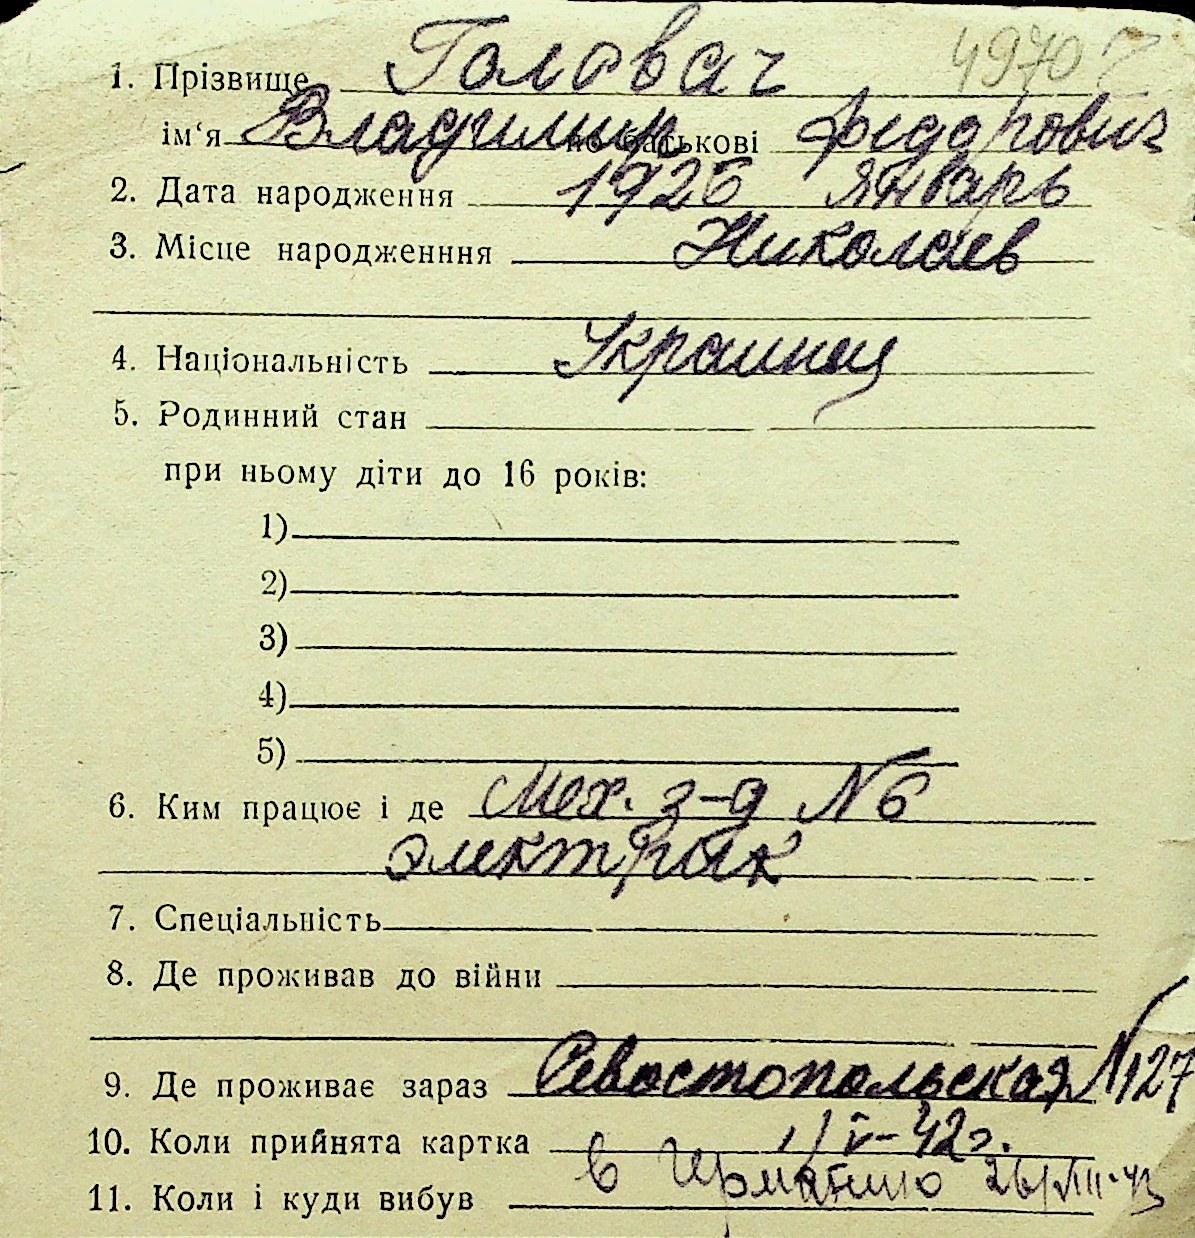 1. Прізвище Головач 4970
ім‘я Владимир по батькові Федорович
2. Дата народження 1926 январь
3. Місце народженння Николаев
4. Національність Украинец
5. Родинний стан
при ньому діти до 16 років:
1)
2)
3)
4)
5)
6. Ким працює і де Мех. з-д №6
электрик
7. Спеціальність
8. Де проживав до війни
9. Де проживає зараз Севостопольская №127
10. Коли прийнята картка 1/V-42г.
11. Коли і куди вибув в Германию 26/VIII-43